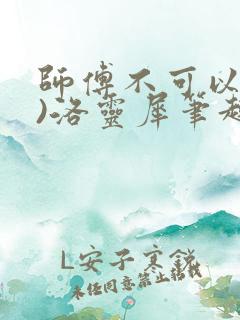 師傅不可以
)洛靈犀筆趣
L安子文銳
未任同意禁止转载